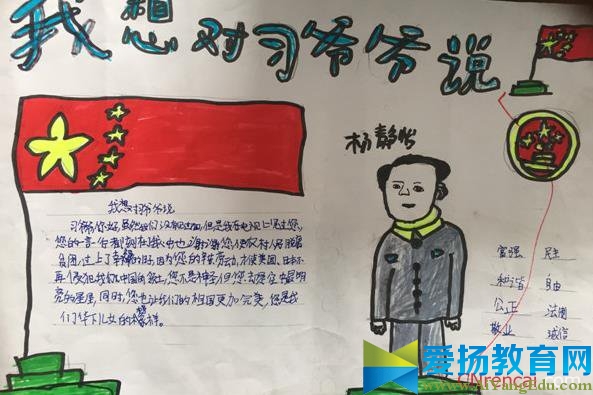 我想对习爷爷说
杨静怡
我想对习爷爷说
习爷爷您好,虽然我们没有见过面,但是我在电视上见过您,
您的一言一行都刻在我心中也谢谢您,使农村人民脱
贫过上了幸福的生活,因为您的辛劳,才使美国、日本不
再侵犯我们中国的领土,您不是神,但您永远是空中最明
亮的星星,同时,您也让我们的祖国更加完美,您是我
们华下儿女的榜样。
富强 民主
和谐 自由
公正 法制
敬业 诚信
爱扬教育网
CNrencai.com
AiYangEdu.com